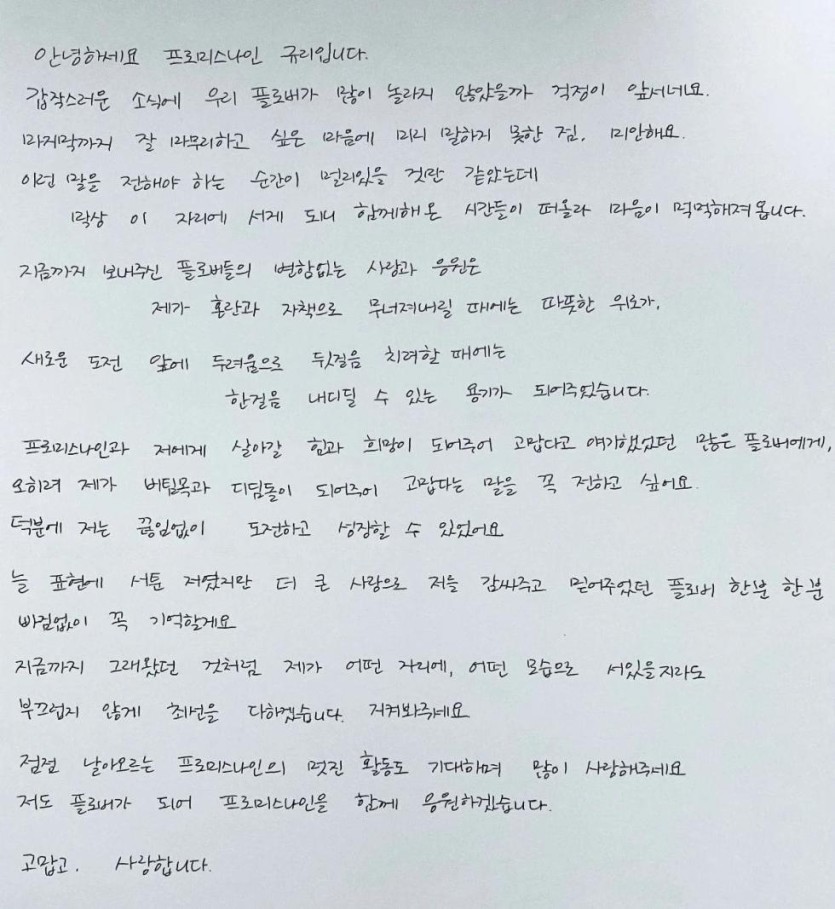 안녕하세요 프로미스나인 규리입니다.
갑작스러운 소식에 우리 플로버가 많이 놀라지 않았을까 걱정이 앞서네요.
마지막까지 잘 마무리하고 싶은 마음에 미리 말하지 못한 점, 미안해요.
이런 말을 전해야 하는 순간이 멀리있을 것만 같았는데
막상 이 자리에 서게 되니 함께해온 시간들이 떠올라 마음이 먹먹해져옵니다.
지금까지 보내주신 플로버들의 변함없는 사랑과 응원은
제가 혼란과 자책으로 무너져내릴 때에는 따뜻한 위로가,
새로운 도전 앞에 두려움으로 뒷걸음 치려할 때에는
한걸음 내디딜 수 있는 용기가 되어주었습니다.
프로미스나인과 저에게 살아갈 힘과 희망이 되어주어 고맙다고 얘기했었던 많은 플로버에게,
오히려 제가 버팀목과 디딤돌이 되어주어 고맙다는 말을 꼭 전하고 싶어요.
덕분에 저는 끊임없이 도전하고 성장할 수 있었어요
늘 표현에 서툰 저였지만 더 큰 사랑으로 저를 감싸주고 믿어주었던 플로버 한분 한분
빠짐없이 꼭 기억할게요
지금까지 그래왔던 것처럼 제가 어떤 자리에, 어떤 모습으로 서있을지라도
부끄럽지 않게 최선을 다하겠습니다. 지켜봐주세요
점점 날아오르는 프로미스나인의 멋진 활동도 기대하며 많이 사랑해주세요
저도 플로버가 되어 프로미스나인을 함께 응원하겠습니다.
고맙고, 사랑합니다.